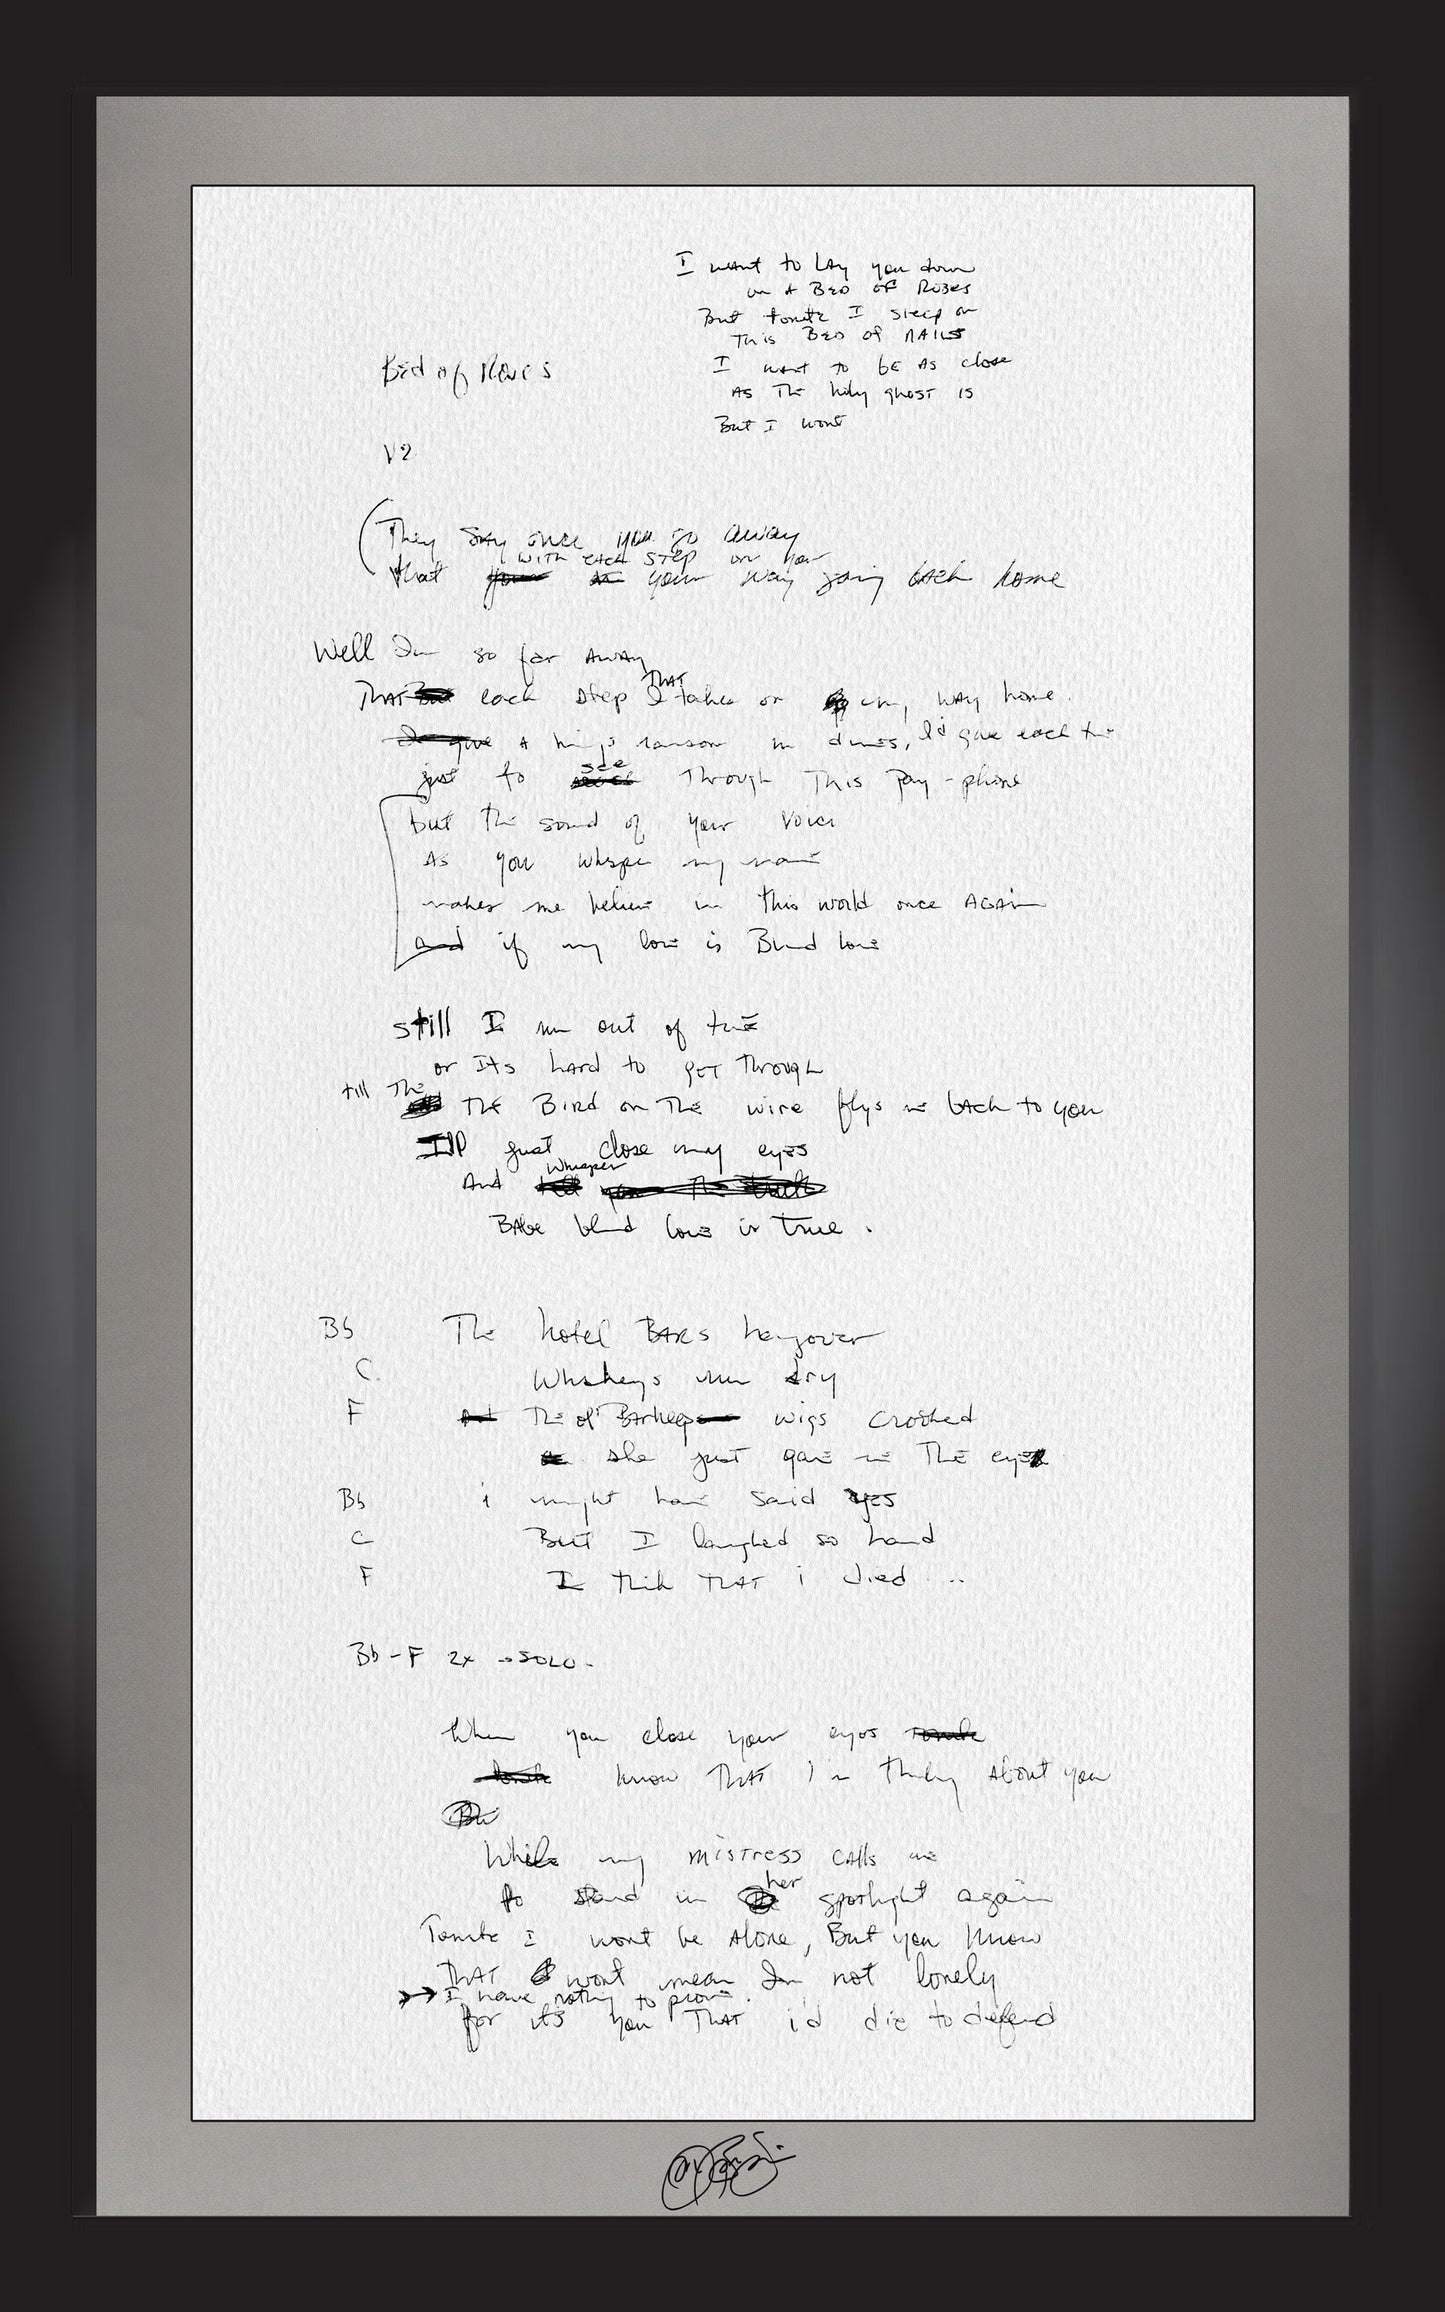 I want to Lay you down
on A BED OF ROSES
But tonite I sleep on
This BED of NAILS
I want to BE AS close
AS The holy ghost is
But I wont
Bed of Roses
V2
They SAy once you go away
with each step on your
that your way going back home
Well Im so far AwAy
THAT
THAT each step I takes on my way home.
I'd give A kings ransom in dimes, I'd give each tn
see
just to through This Pay-phone
But the sound of your voice
As you whisper my name
makes me believe in this world once AGAin
and if my love is Blind love
still I run out of time
or Its hard to get Through
till The
THE BIRD on The wire flys me back to you
Ill just close my eyes
whisper
And tell you The truth
BAbe blind love is true.
Bb The hotel BARs hangover
C. Whiskeys run dry
F And The ol' BArkeeps wigs crooked
she just gave me The eye
Bb i might have said yES
C But I laughed so hard
F I think THAT i died...
Bb - F 2x - SOLO -
When you close your eyes tonite
tonite know THAT I'm thinking About you
While my mistress calls me
her
to stand in spotlight again
Tonite I wont be Alone, But you know
THAT wont mean Im not lonely
I have nothing to prove.
for its you THAT i'd die to defend